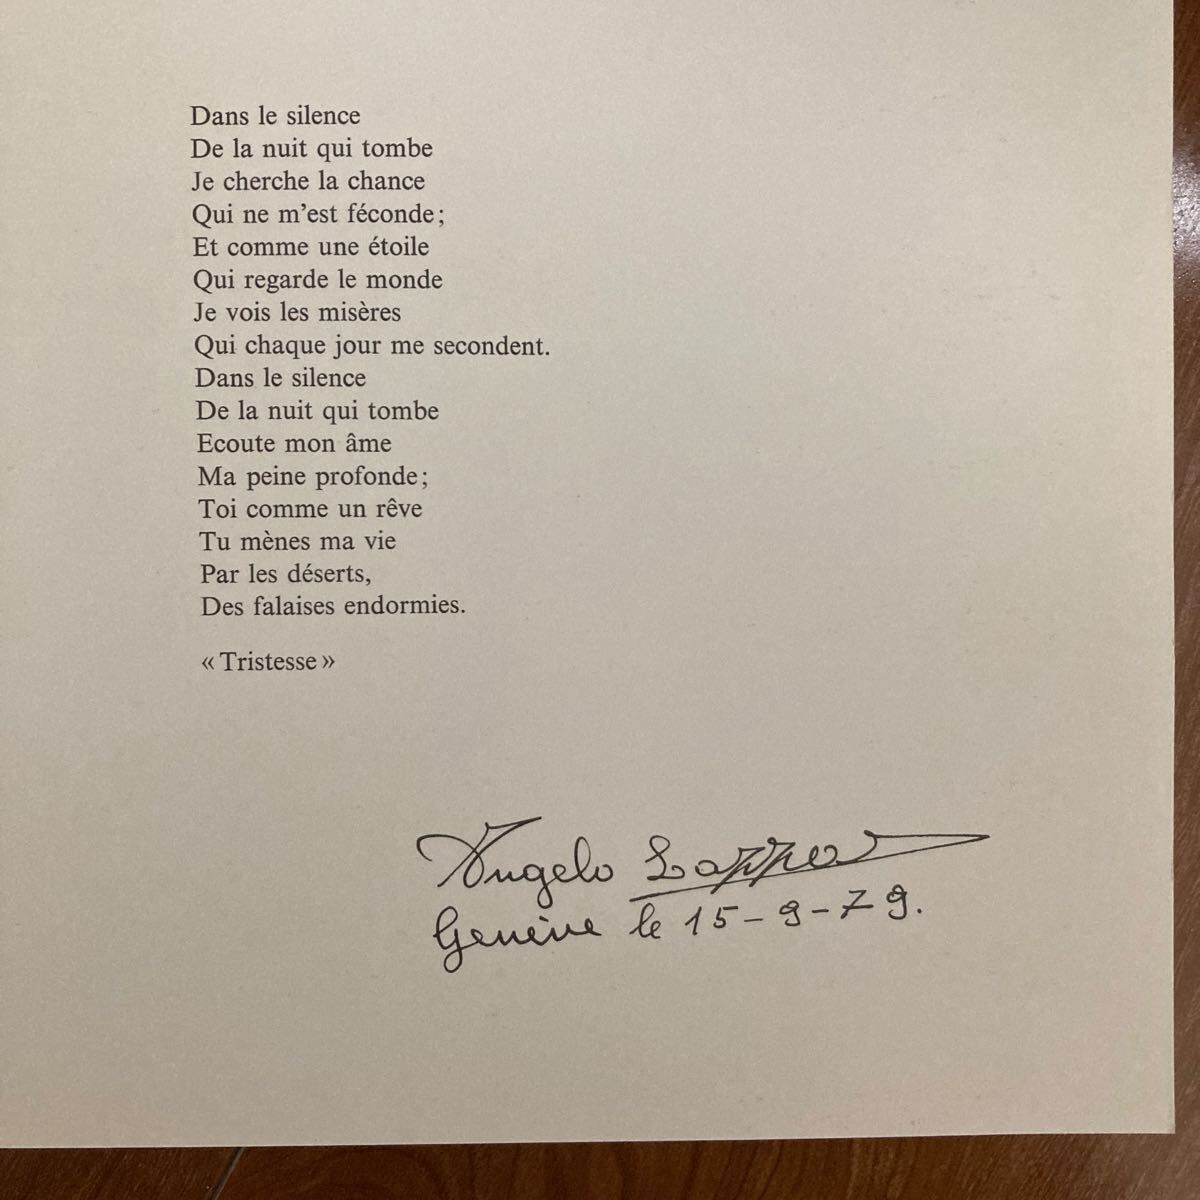 Dans le silence
De la nuit qui tombe
Je cherche la chance
Qui ne m'est féconde;
Et comme une étoile
Qui regarde le monde
Je vois les misères
Qui chaque jour me secondent.
Dans le silence
De la nuit qui tombe
Ecoute mon âme
Ma peine profonde;
Toi comme un rêve
Tu mènes ma vie
Par les déserts,
Des falaises endormies.
«Tristesse»
Angelo
Genève le 15-9-79.